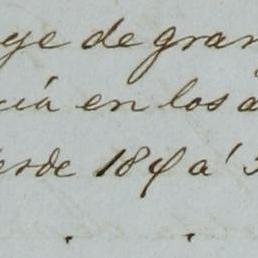 ge de gran
cia en los a
erde 184 a' 5